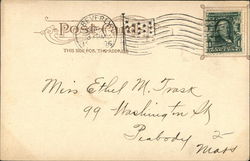 Post Card
THIS SIDE FOR THE ADDRESS
BEVERLY
Miss Ethel M. Trask
99 Washington St
Peabody
Mass